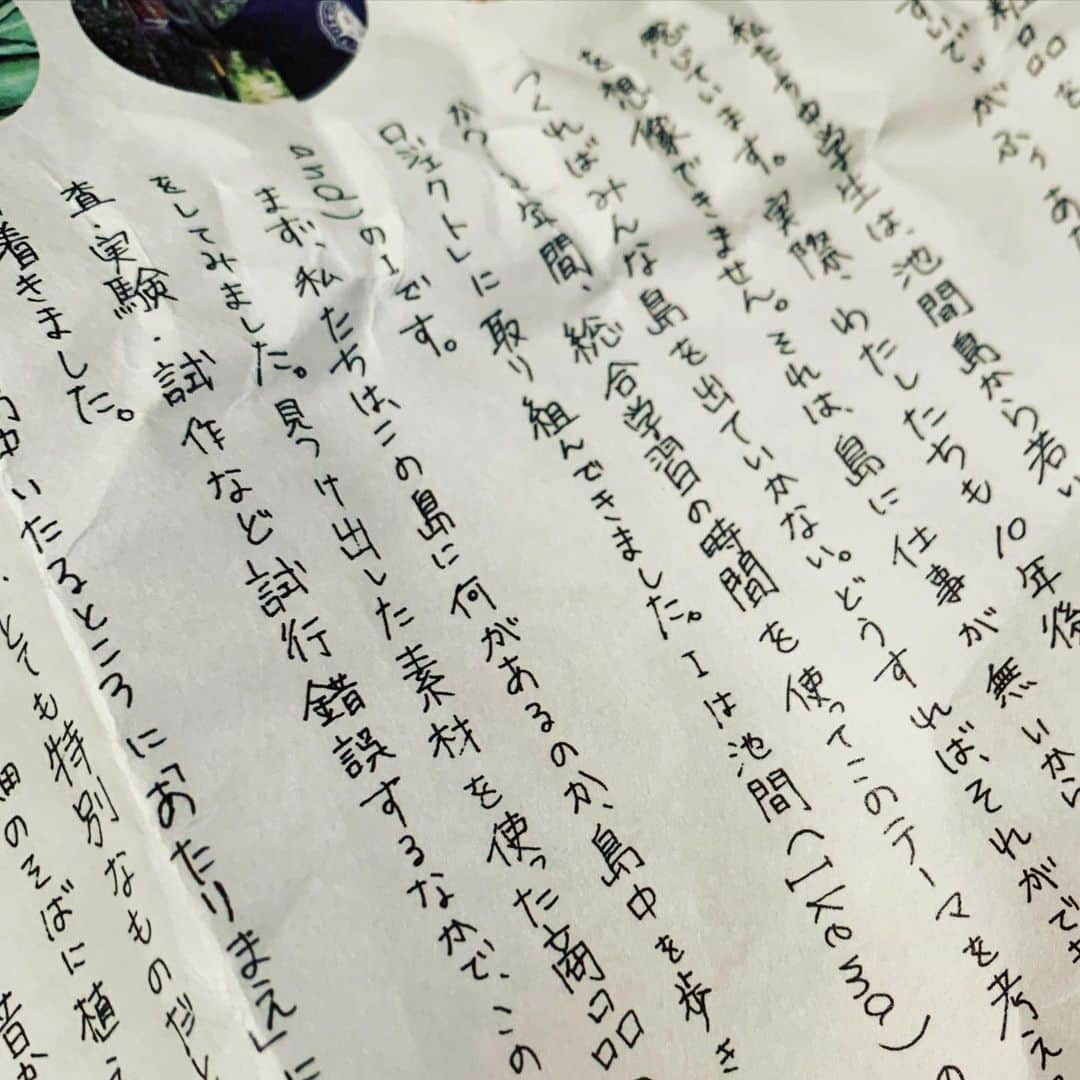 粧品を
私たち中学生は、池間島から若い
思っています。実際、わたしたちも10年後
を想像できません。それは、島に仕事が無いから
つくればみんな島を出ていかない。どうすれば、それができ
から2年間、総合学習の時間を使ってこのテーマを考え
ロジェクトIに取り組んできました。Iは池間(Ikema)の
and)のIです。
まず、私たちは、この島に何があるのか、島中を歩き
をしてみました。見つけ出した素材を使った商品の
査・実験・試作など試行錯誤するなかで、この
着きました。
中いたるところに「あたりまえ」に
とても特別なものだと
畑のそばに植
昔